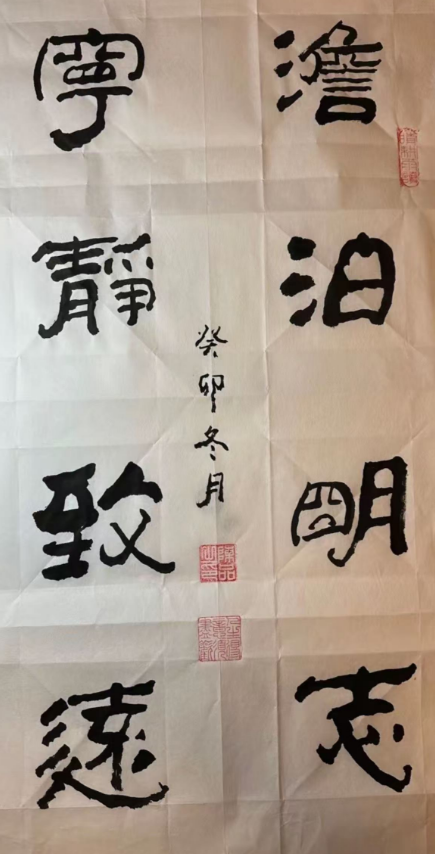 澹泊明志
寧靜致遠
癸卯冬月